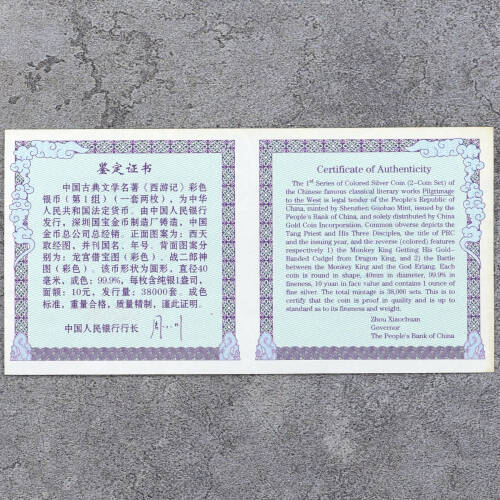 鉴定证书
中国古典文学名著《西游记》彩色
银币（第1组）（一套两枚），为中华
人民共和国法定货币。由中国人民银行
发行，深圳国宝金币制造厂铸造，中国
金币总公司总经销。正面图案为：西天
取经图，并刊国名、年号。背面图案分
别为：龙宫借宝图（彩色）、战二郎神
图（彩色）。该币形状为圆形，直径40
毫米，成色：99.9%，每枚含纯银1盎司，
面额：10元，发行量：38000套。成色
标准，重量合格，质量精制，谨此证明。
中国人民银行行长
Certificate of Authenticity
The 1st Series of Colored Silver Coin (2-Coin Set) of
the Chinese famous classical literary works Pilgrimage
to the West is legal tender of the People's Republic of
China, minted by Shenzhen Guobao Mint, issued by the
People's Bank of China, and solely distributed by China
Gold Coin Incorporation. Common obverse depicts the
Tang Priest and His Three Disciples, the title of PRC
and the issuing year, and the reverse (colored) features
respectively 1) the Monkey King Getting His Gold-
Banded Cudgel from Dragon King, and 2) the Battle
between the Monkey King and the God Erlang. Each
coin is round in shape, 40mm in diameter, 99.9% in
fineness, 10 yuan in face value and contains 1 ounce of
fine silver. The total mintage is 38,000 sets. This is to
certify that the coin is proof in quality and is up to
standard as to its fineness and weight.
Zhou Xiaochuan
Governor
The People's Bank of China